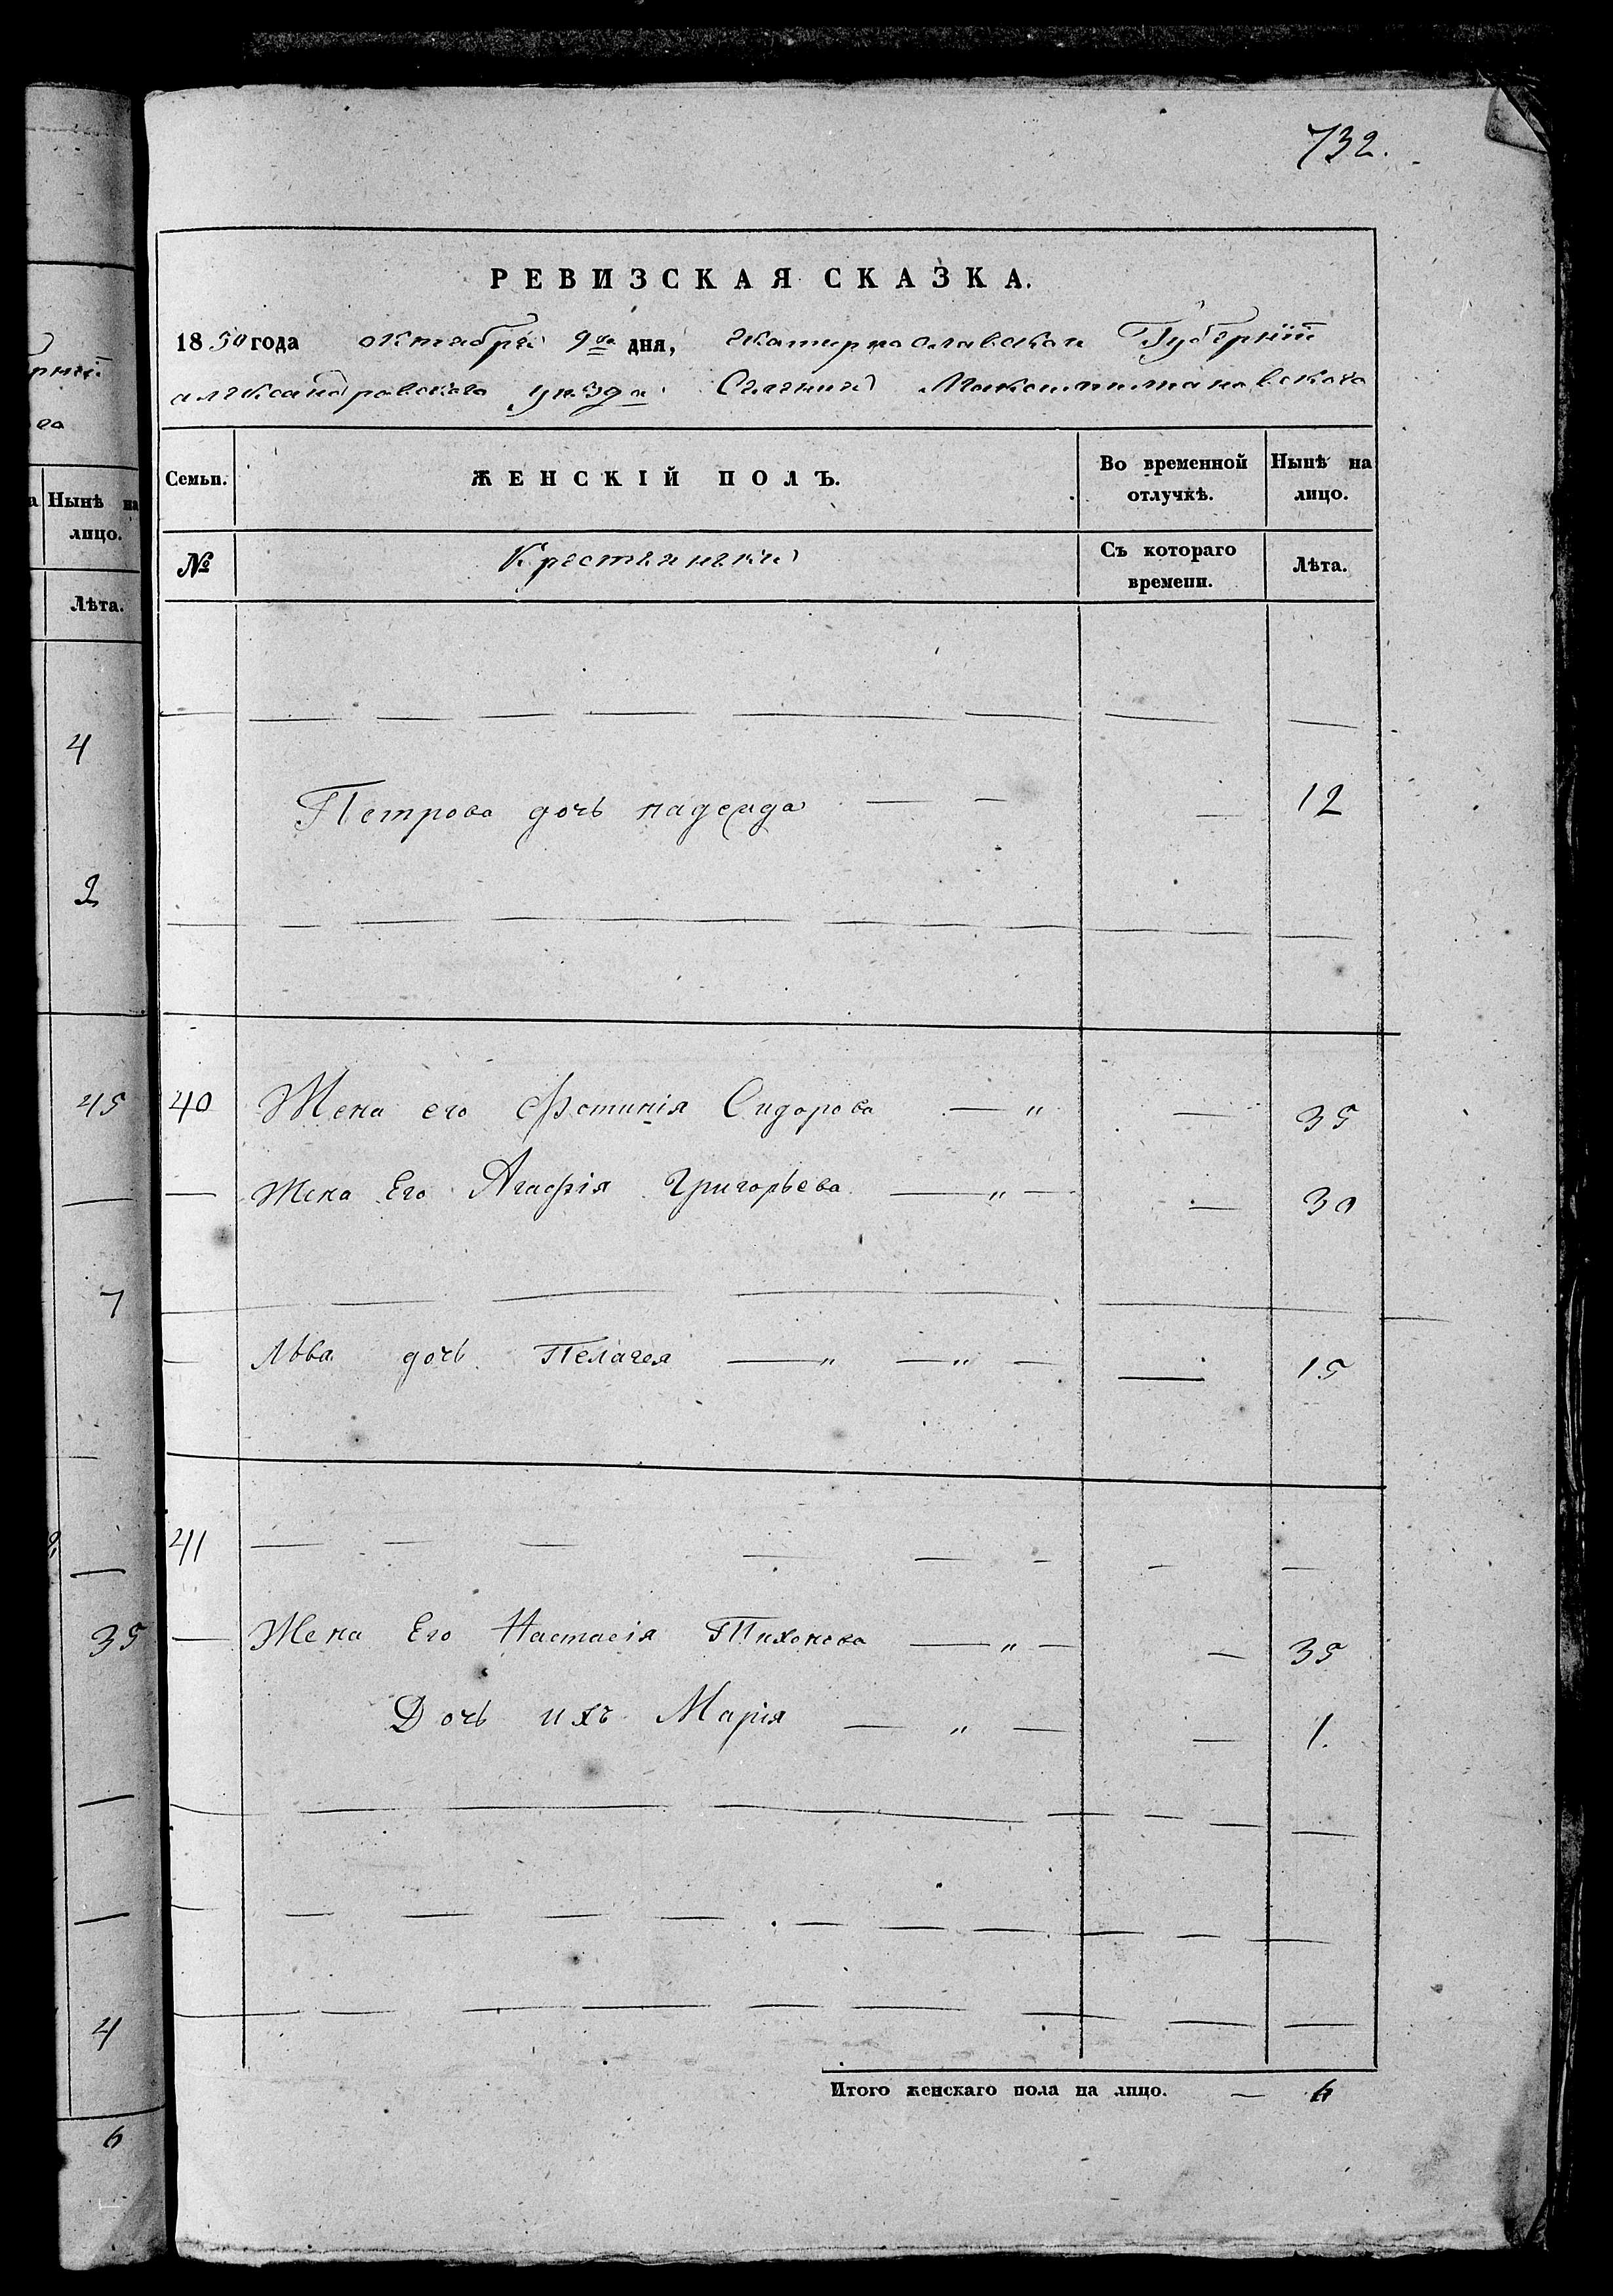 732.
РЕВИЗСКАЯ СКАЗКА.
1850 года октября 9го дня, екатеринославской Губерніи
александровскаго уезда Селения
рніи
га
Семьи. ЖЕНСКІЙ ПОЛЪ. Во временной отлучкѣ. Нынѣ на лицо.
а Нынѣ на лицо.
№ Крестьянки Съ котораго времени. Лѣта.
Лѣта.
4
Петрова дочь надежда — — — 12
2
45
40 Жена его Фотинія Сидорова — " — 35
— Жена Его Агафія Григорьева — " — — 30
7
— Львва дочь Пелагея — " — " — — 15
41 — — — — — — — —
35
— Жена Его Настасія Тихонова — " — — 35
Дочь ихъ Марія — " — — 1.
4
Итого женскаго пола на лицо. — 6
6